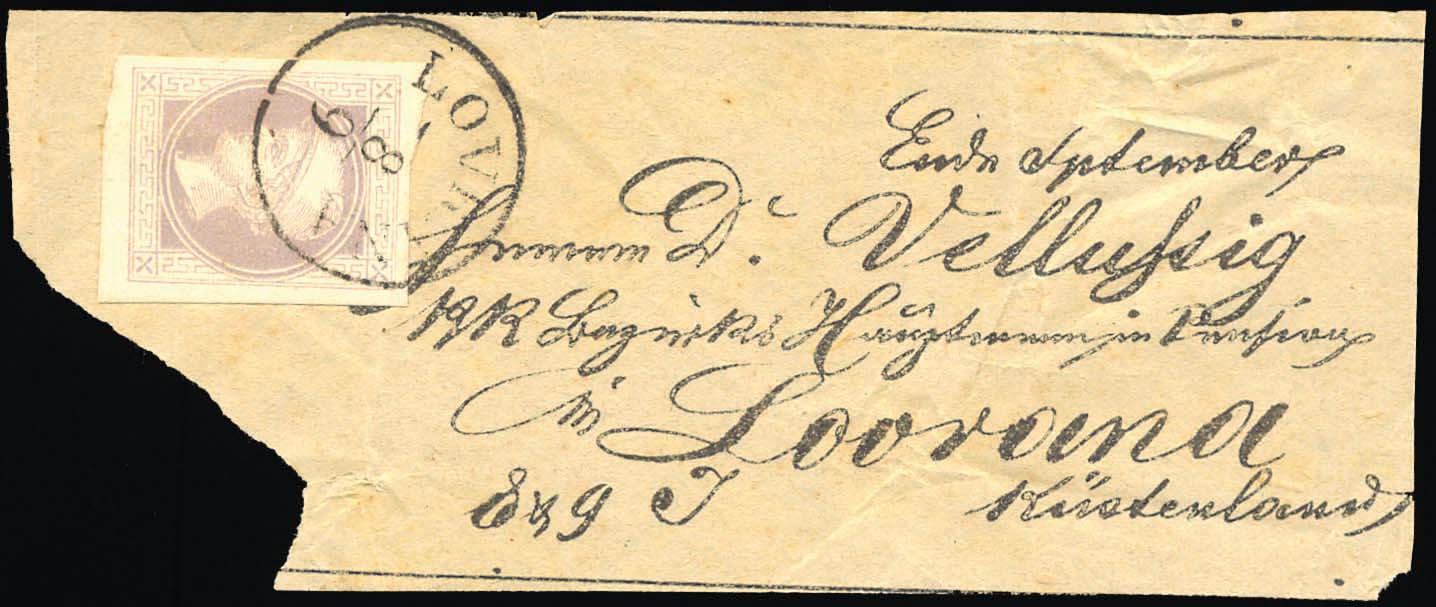 LOVRANA
9/8
Ende September
Herrn Dr. Vellussig
KK Bezirks Hauptmann in Pension
in Lovrana
Exg I Küstenland